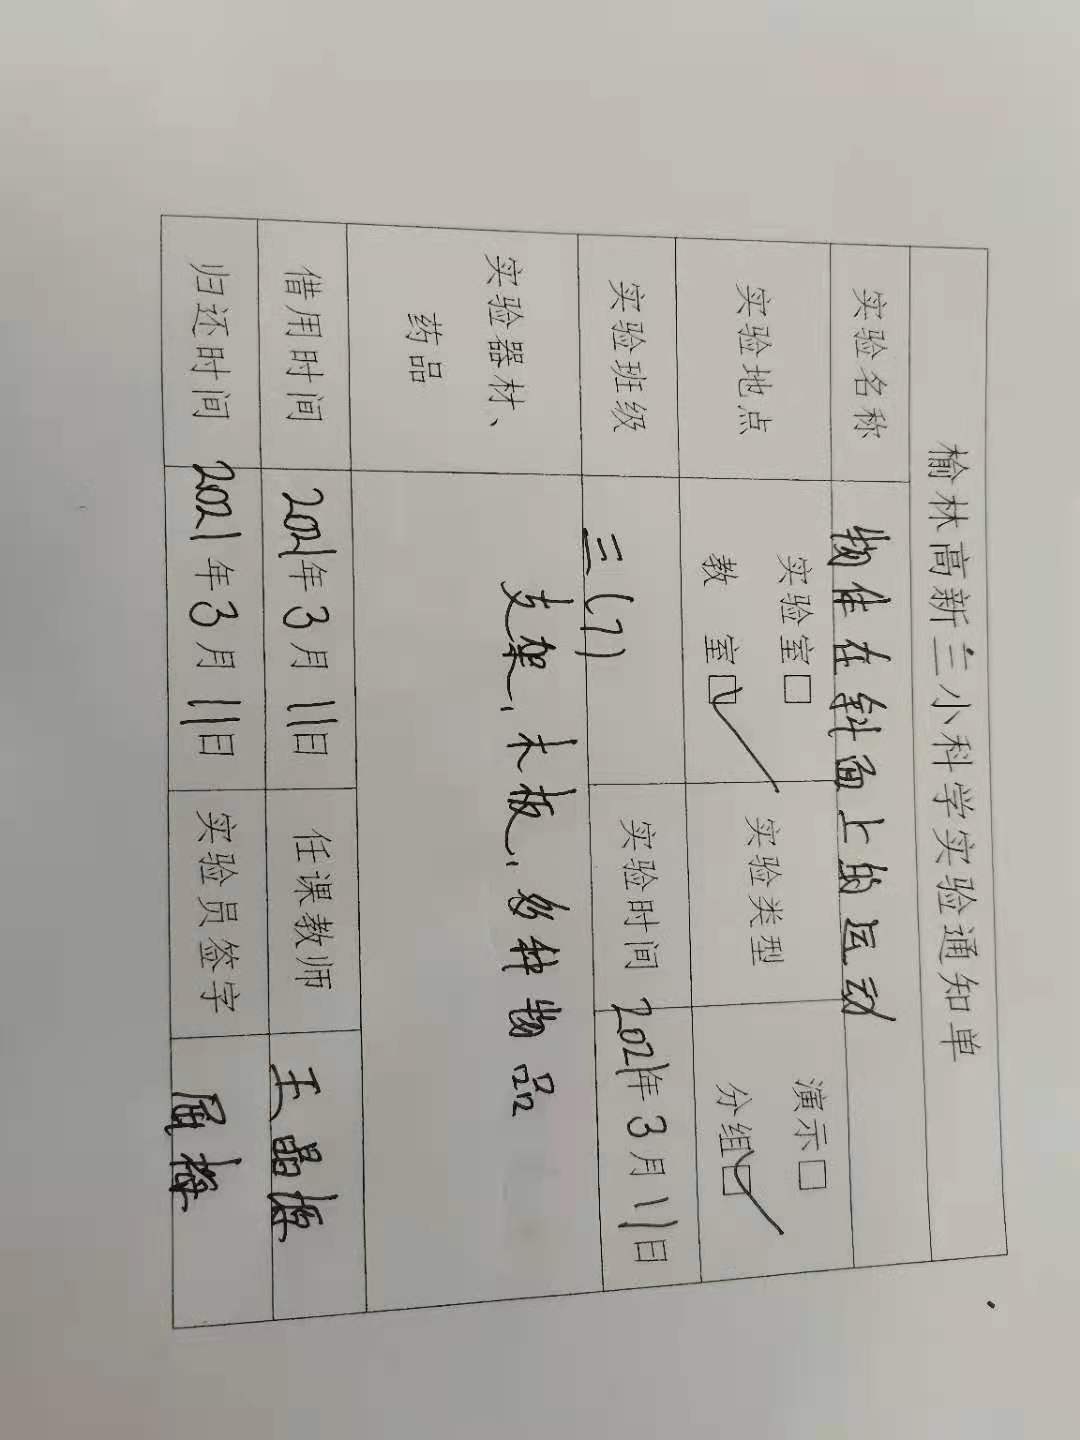 榆林高新三小科学实验通知单
实验名称 物体在斜面上的运动
实验地点 实验室□ 教 室□✓ 实验类型 演示□ 分组□✓
实验班级 三(7) 实验时间 2021年3月11日
实验器材、药品 支架、木板、多种物品
借用时间 2021年3月11日 任课教师 王晶
归还时间 2021年3月11日 实验员签字 屈梅